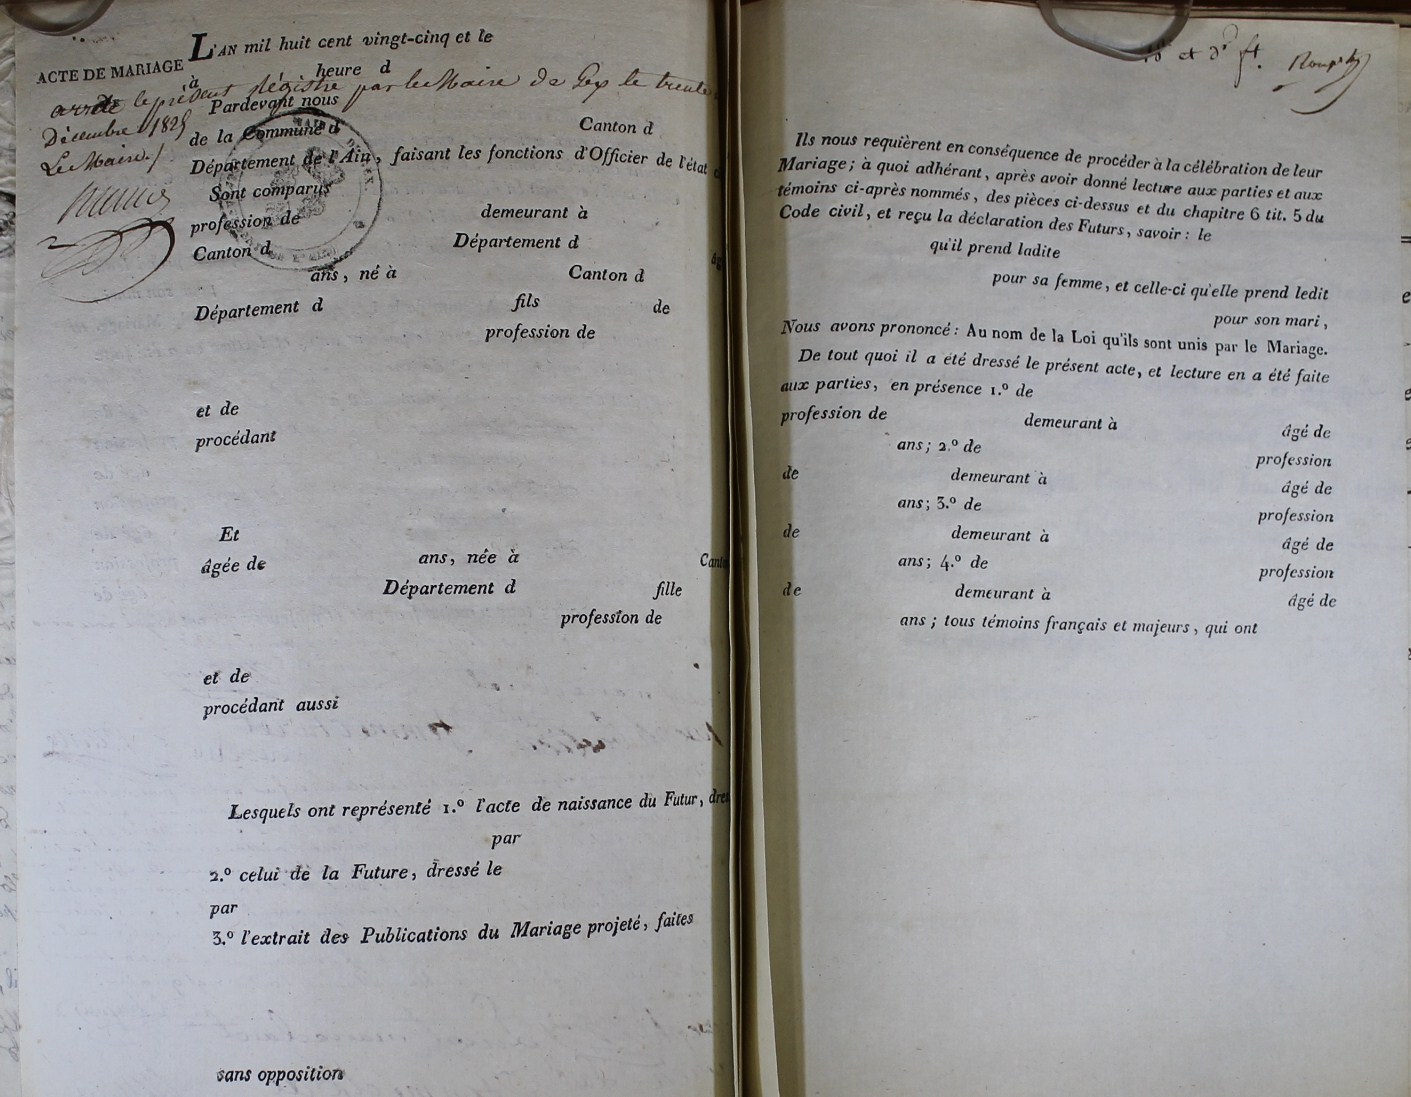 ACTE DE MARIAGE
L'AN mil huit cent vingt-cinq et le
à heure d
arrêté le présent Régistre par le Maire de Gex le trente
Décembre 1825
Le Maire./.
Pardevant nous
de la Commune d Canton d
Département de l'Ain, faisant les fonctions d'Officier de l'état
Sont comparus
profession de demeurant à
Canton d Département d
ans, né à Canton d
Département d fils de
profession de
et de
procédant
Et
âgée de ans, née à Canto
Département d fille
profession de
et de
procédant aussi
Lesquels ont représenté 1.º l'acte de naissance du Futur, dres
par
2.º celui de la Future, dressé le
par
3.º l'extrait des Publications du Mariage projeté, faites
sans opposition
et d.º ft.
Ils nous requièrent en conséquence de procéder à la célébration de leur
Mariage; à quoi adhérant, après avoir donné lecture aux parties et aux
témoins ci-après nommés, des pièces ci-dessus et du chapitre 6 tit. 5 du
Code civil, et reçu la déclaration des Futurs, savoir: le
qu'il prend ladite
pour sa femme, et celle-ci qu'elle prend ledit
pour son mari,
Nous avons prononcé: Au nom de la Loi qu'ils sont unis par le Mariage.
De tout quoi il a été dressé le présent acte, et lecture en a été faite
aux parties, en présence 1.º de
profession de demeurant à âgé de
ans; 2.º de profession
de demeurant à âgé de
ans; 3.º de profession
de demeurant à âgé de
ans; 4.º de profession
de demeurant à âgé de
ans; tous témoins français et majeurs, qui ont